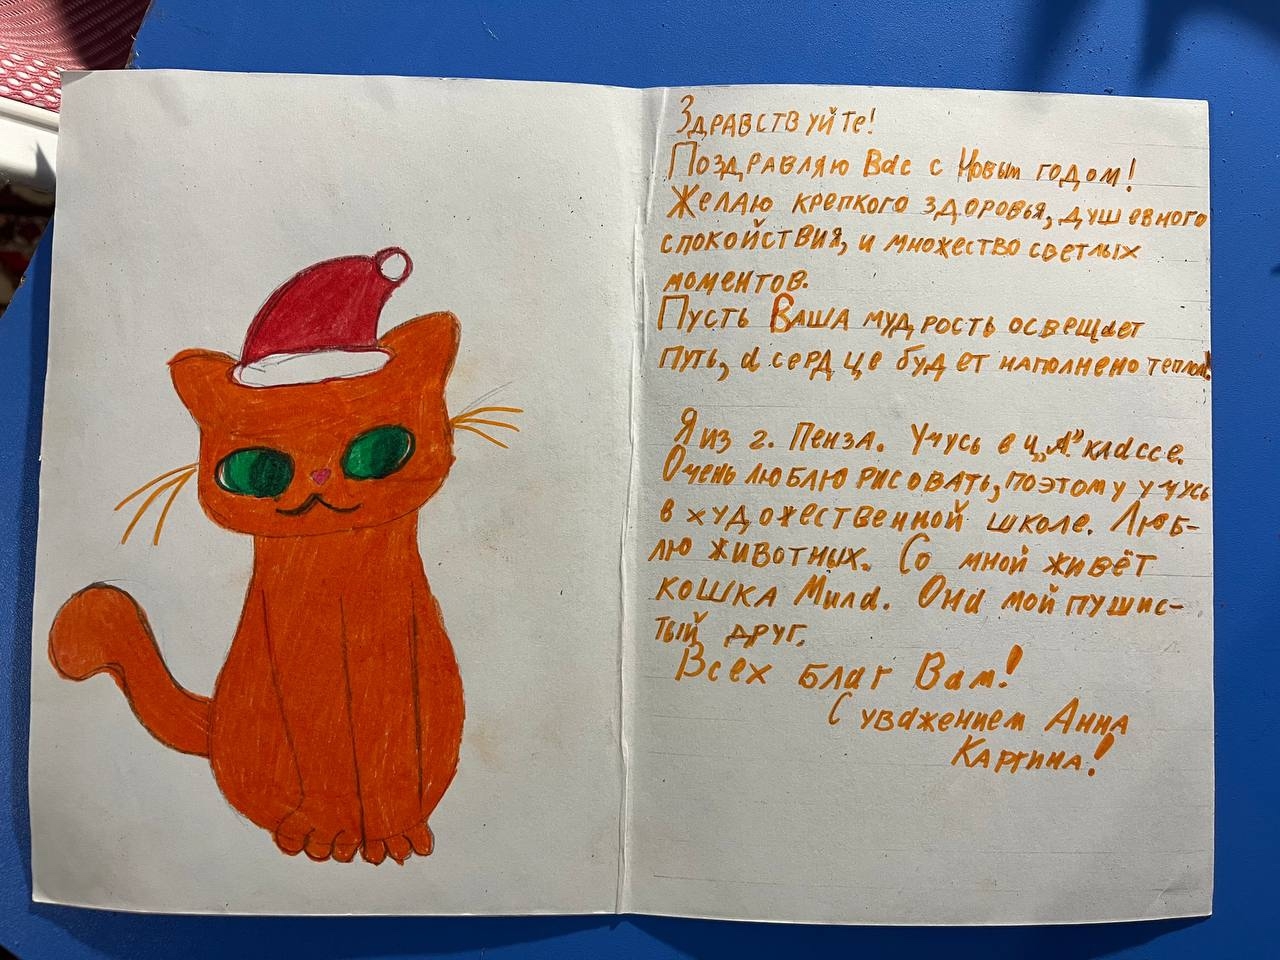 Здравствуйте!
Поздравляю Вас с Новым годом!
Желаю крепкого здоровья, душевного
спокойствия, и множество светлых
моментов.
Пусть Ваша мудрость освещает
путь, а сердце будет наполнено теплом!
Я из г. Пенза. Учусь в 4 „А" классе.
Очень люблю рисовать, поэтому учусь
в художественной школе. Люб-
лю животных. Со мной живёт
кошка Мила. Она мой пушис-
тый друг.
Всех благ Вам!
С уважением Анна
Картина!